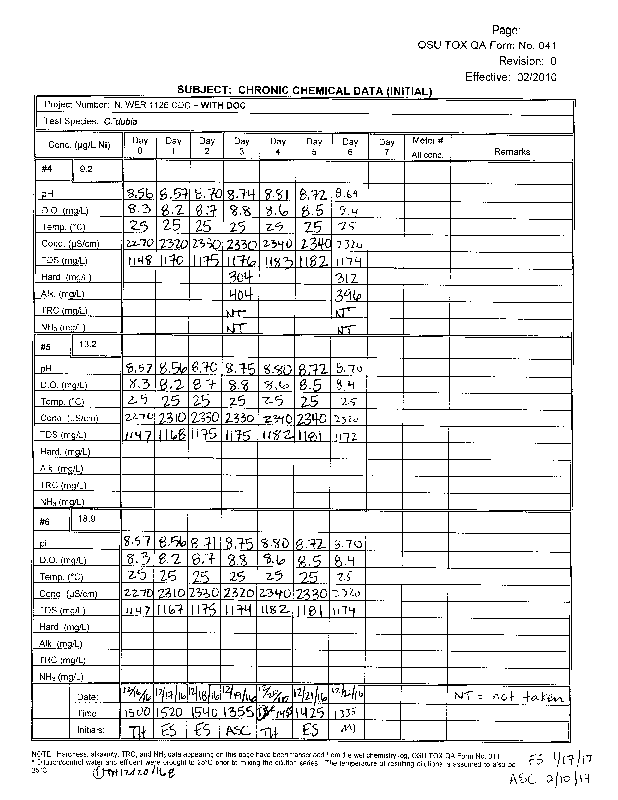 Page:
OSU TOX QA Form No. 041
Revision: 0
Effective: 02/2010
SUBJECT: CHRONIC CHEMICAL DATA (INITIAL)
Project Number: N. WER 1126 CDC – WITH DOC
Test Species: C. dubia
Conc. (µg/L Ni) Day 0 Day 1 Day 2 Day 3 Day 4 Day 5 Day 6 Day 7 Meter # All conc. Remarks
#4 9.2
pH 8.56 8.57 8.70 8.74 8.81 8.72 8.69
D.O. (mg/L) 8.3 8.2 8.7 8.8 8.6 8.5 8.4
Temp. (°C) 25 25 25 25 25 25 25
Cond. (µS/cm) 2270 2320 2330 2330 2340 2340 2320
TDS (mg/L) 1148 1170 1175 1176 1183 1182 1174
Hard. (mg/L) 304 312
Alk. (mg/L) 404 396
TRC (mg/L) NT NT
NH₃ (mg/L) NT NT
#5 13.2
pH 8.57 8.56 8.70 8.75 8.80 8.72 8.70
D.O. (mg/L) 8.3 8.2 8.7 8.8 8.6 8.5 8.4
Temp. (°C) 25 25 25 25 25 25 25
Cond. (µS/cm) 2270 2310 2330 2330 2340 2340 2320
TDS (mg/L) 1147 1168 1175 1175 1182 1181 1172
Hard. (mg/L)
Alk. (mg/L)
TRC (mg/L)
NH₃ (mg/L)
#6 18.9
pH 8.57 8.56 8.71 8.75 8.80 8.72 8.70
D.O. (mg/L) 8.3 8.2 8.7 8.8 8.6 8.5 8.4
Temp. (°C) 25 25 25 25 25 25 25
Cond. (µS/cm) 2270 2310 2330 2320 2340 2330 2320
TDS (mg/L) 1147 1167 1175 1174 1182 1181 1174
Hard. (mg/L)
Alk. (mg/L)
TRC (mg/L)
NH₃ (mg/L)
Date: 12/16/16 12/17/16 12/18/16 12/19/16 12/20/16 12/21/16 12/22/16 NT = not taken
Time 1500 1520 1540 1355 1425 1335
Initials: TH ES ES ASC TH ES
NOTE: Hardness, alkalinity, TRC, and NH₃ data appearing on this page have been transcribed from the wet chemistry log, OSU TOX QA Form No. 011
* Dilution/control water and effluent were brought to 25°C prior to mixing the dilution series. The temperature of resulting dilutions is assumed to also be 25°C
ES 1/17/17
ASC 2/10/17